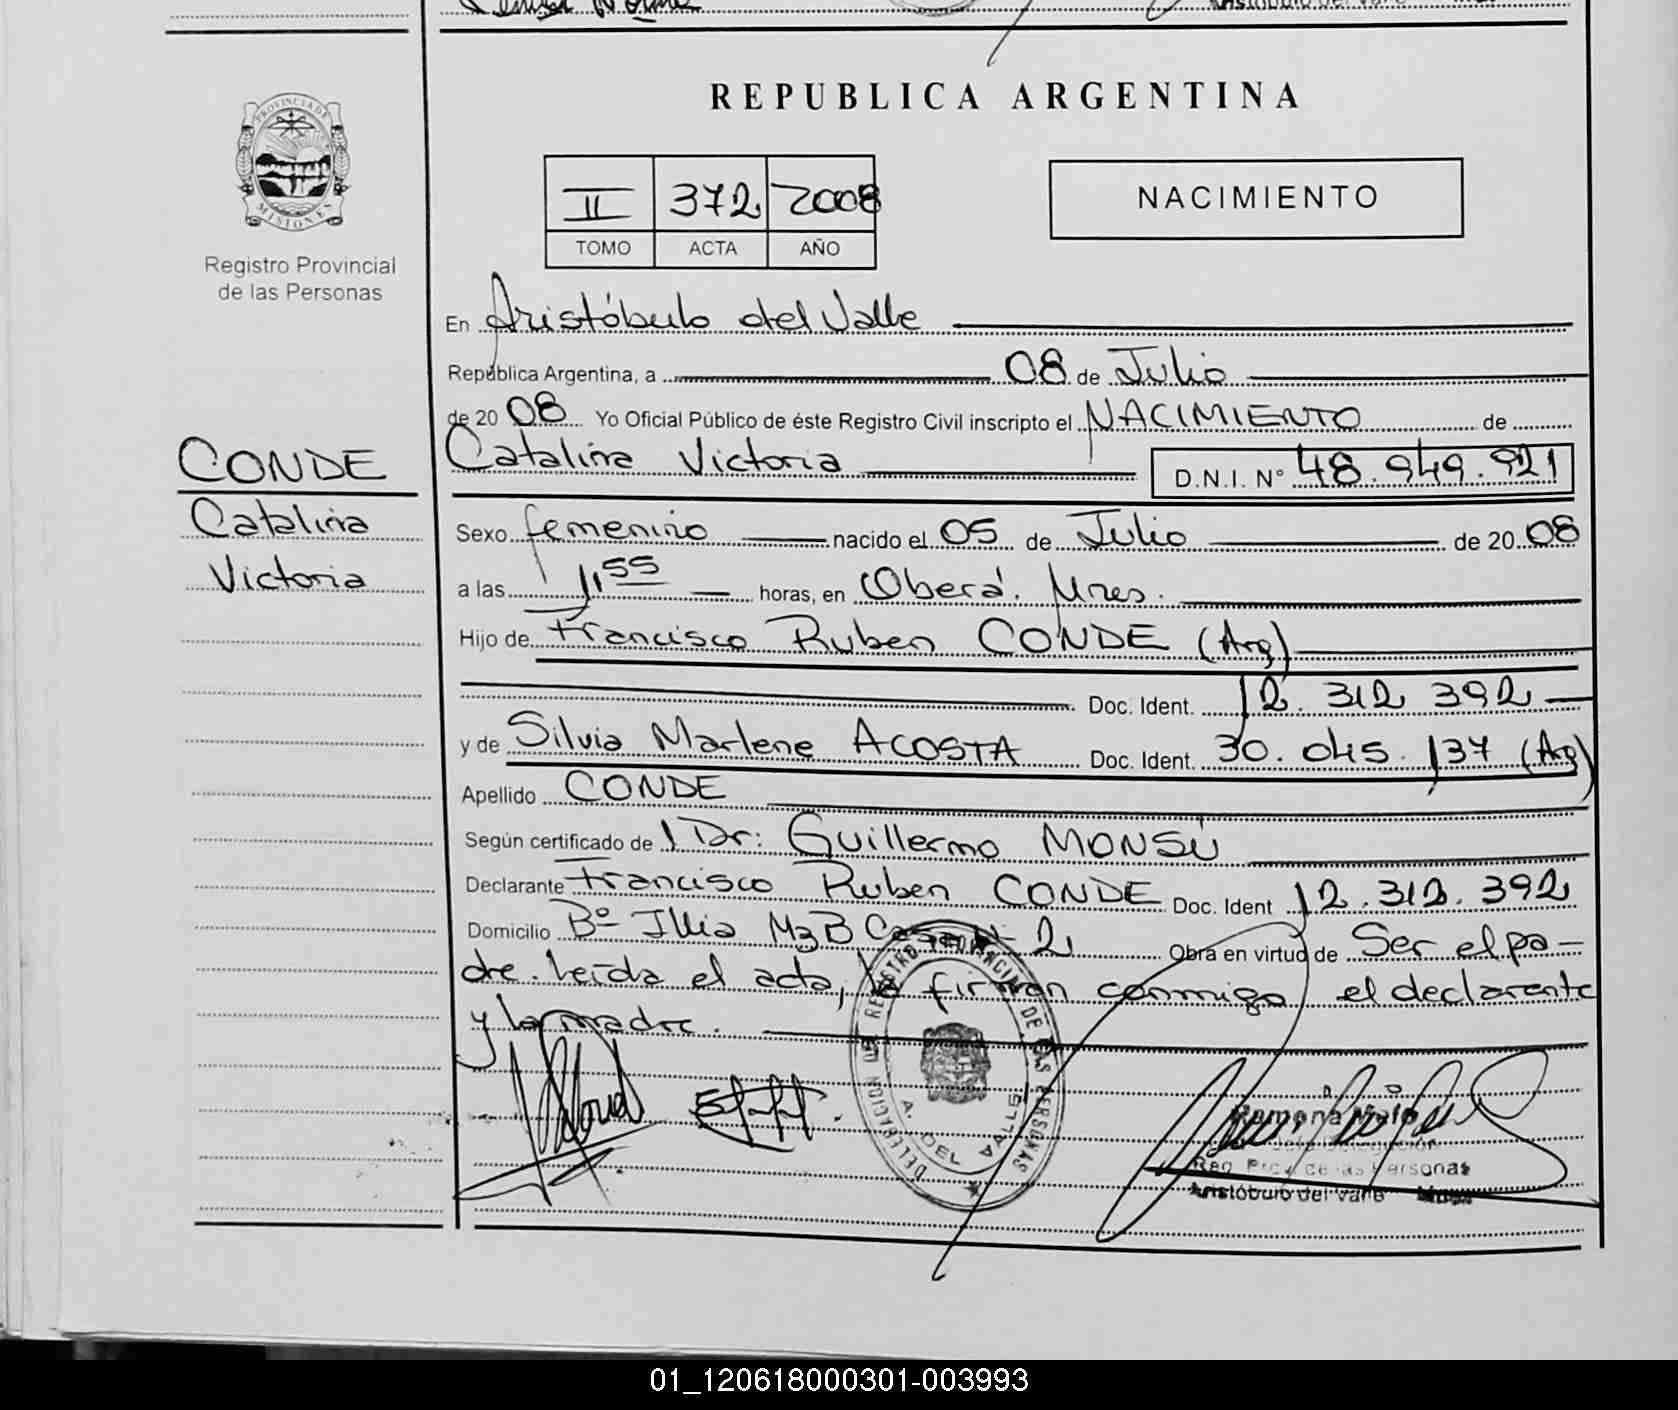 REPUBLICA ARGENTINA
PROVINCIA DE
MISIONES
Registro Provincial
de las Personas
II 372 2008
TOMO ACTA AÑO
NACIMIENTO
En Aristóbulo del Valle
República Argentina, a 08 de Julio
de 20 08 Yo Oficial Público de éste Registro Civil inscripto el NACIMIENTO de
Catalina Victoria D.N.I. N° 48.949.921
CONDE
Catalina
Victoria
Sexo femenino nacido el 05 de Julio de 20 08
a las 11 55 horas, en Oberá. Mnes.
Hijo de Francisco Ruben CONDE (Arg)
Doc. Ident. 12.312 392
y de Silvia Marlene ACOSTA Doc. Ident. 30.045.137 (Arg)
Apellido CONDE
Según certificado de Dr: Guillermo MONSÚ
Declarante Francisco Ruben CONDE Doc. Ident 12.312.392
Domicilio Bº Illia MzB Casa 2 Obra en virtud de Ser el pa-
dre. Leída el acta, la firman conmigo el declarante
y la madre.
DELEGACION DEL REGISTRO PROVINCIAL DE LAS PERSONAS
A. DEL VALLE
Ramona
Reg Prov de las Personas
Aristóbulo del Valle Mnes
01_120618000301-003993